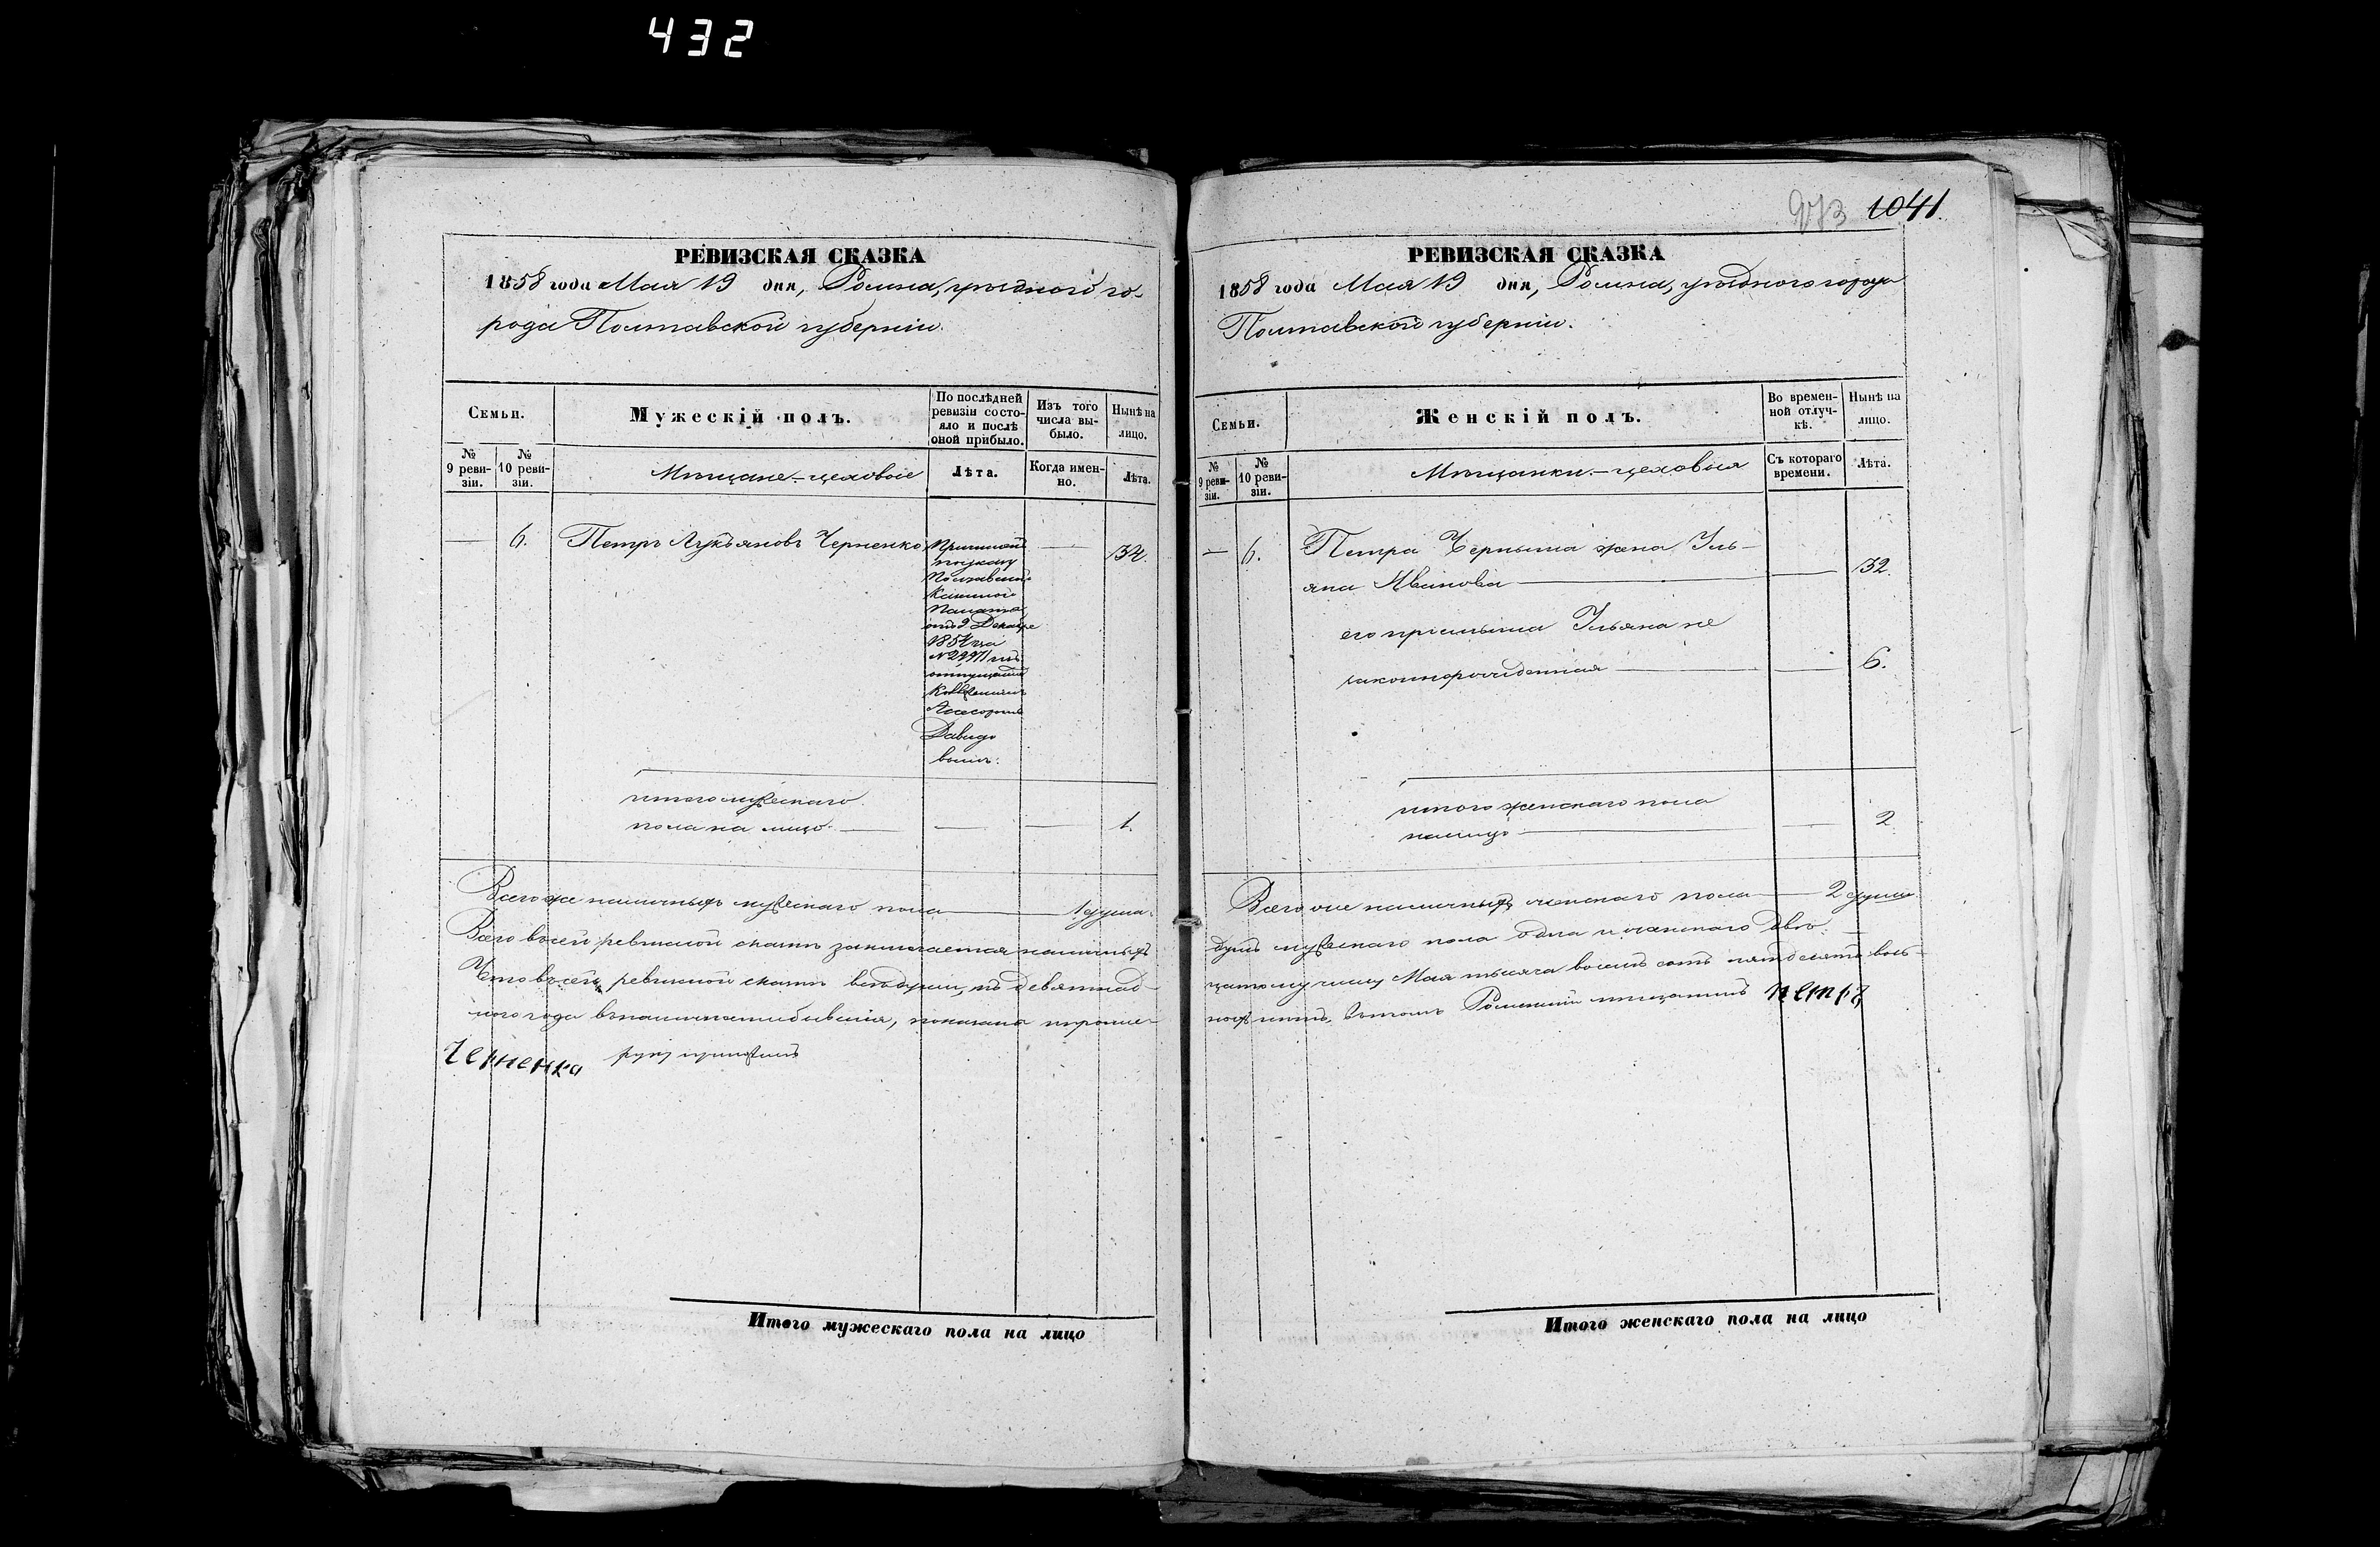 432
РЕВИЗСКАЯ СКАЗКА
1858 года Мая 19 дня, Ромна, уѣзднаго го-
рода Полтавской губерніи.
Семьи.
Мужескій полъ.
По послѣдней ревизіи состояло и послѣ оной прибыло.
Изъ того числа выбыло.
Нынѣ на лицо.
№ 9 ревизіи.
№ 10 ревизіи.
Мѣщане-цеховые
Лѣта.
Когда именно.
Лѣта.
— 6. Петръ Лукьяновъ Черненко — 34.
по указу
Полтавской
Казенной
Палаты
отъ 9 Декабря
1854 за
отпущенный
Ассесоромъ
Давидо
вымъ.
итого мужескаго
пола на лицо — — — 1.
Всего же наличныхъ мужескаго пола — 1 душа.
Всего въ сей ревизской сказкѣ заключается наличныхъ
Что въ сей ревизской сказкѣ всѣ души, по девятнад-
ного года въ наличности бывшія, показаны и проше-
Черненко руку приложилъ
Итого мужескаго пола на лицо
973 1041.
РЕВИЗСКАЯ СКАЗКА
1858 года Мая 19 дня, Ромна, уѣзднаго города
Полтавской губерніи.
Семьи.
Женскій полъ.
Во временной отлучкѣ.
Нынѣ на лицо.
№ 9 ревизіи.
№ 10 ревизіи.
Мѣщанки-цеховыя
Съ котораго времени.
Лѣта.
— 6. Петра жена Уль-
яна Иванова — — 32.
его Ульяна не
законнорожденная — — 6.
итого женскаго пола
налицо — — 2
Всего же наличныхъ женскаго пола — 2 души
душъ мужескаго пола одна и женскаго двѣ.
цатому числу Мая тысяча восемь сотъ пятдесятъ вось-
въ томъ Роменскій мѣщанинъ Петръ
Итого женскаго пола на лицо